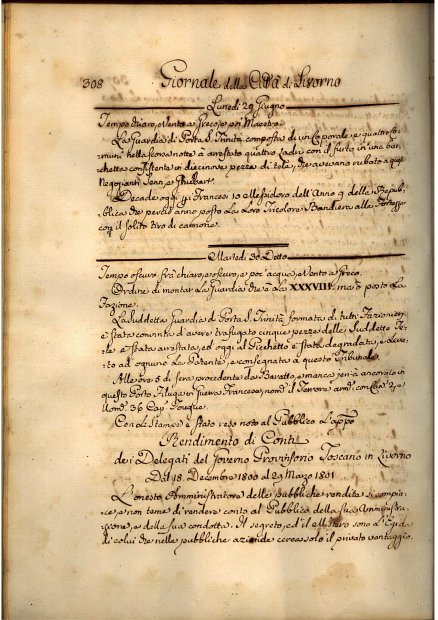 308 Giornale della Città di Livorno
Lunedi 29 Giugno
Tempo chiaro, e Vento a Greco, e poi Maestro.
La Guardia di Porta S. Trinita composta di un Caporale, e quattro Co=
muni nella scorsa notte à arrestato quattro Ladri con il furto in una bar=
chetta consistente in diecinove pezze di tela, che avevano rubato a
Negozianti Senn, e
Decade oggi 10 Messidoro dell'Anno 9 della Repub=
blica che perciò anno posto La Loro Tricolore Bandiera alle Fortezze
con il solito tiro di cannone.
Martedi 30 Detto
Tempo oscuro, frà chiaro, e oscuro, e poi acqua, e Vento a Greco.
Ordine di montar La Guardia che à La XXXVIII. ma à posto La
Fazione.
La Suddetta Guardia di Porta S. Trinità formata di tutti Fazionieri
è stata convinta di avere trafugato cinque pezze delle Suddette Te=
le è stata arrestata, ed oggi al Picchetto è stata degradata, e
to ad ognuno La Patente, e consegnata a questo Tribunale.
Alle ore 5 di sera procedente da Baratto, e manca jeri à ancorato in
questo Porto
Cap.
Con Le Stampe è stato reso noto al Pubblico L'appo
Rendimento di Conti
dei Delegati del Governo Provvisorio Toscano in Livorno
Dal 18. Decembre 1800 al 29 Marzo 1801
L'onesto Amministratore delle pubbliche rendite si compia=
ce, e non teme di rendere conto al Pubblico della sua Amministra=
zione, e della sua condotta. Il segreto, ed il Mistero sono L'Egida
di colui che nelle pubbliche aziende cerca solo il privato vantaggio.